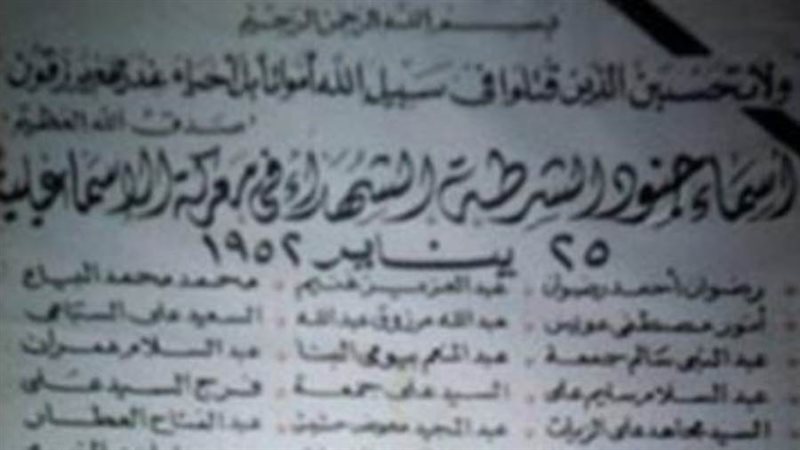 بسم الله الرحمن الرحيم
ولا تحسبن الذين قتلوا في سبيل الله أمواتا بل أحياء عند ربهم يرزقون
"صدق الله العظيم"
أسماء جنود الشرطة الشهداء في معركة الاسماعيلية
٢٥ يناير ١٩٥٢
رضوان أحمد رضوان عبد العزيز غنيم محمد محمد البياع
أنور مصطفى عويس عبد الله مرزوق عبد الله السعيد على السباعى
عبد النبى سالم جمعة عبد المنعم بيومى البنا عبد السلام عمران
عبد السلام سليم على السيد على جمعة فرج السيد على
السيد مجاهد على الزيات عبد المجيد معوض عبد الفتاح العطار